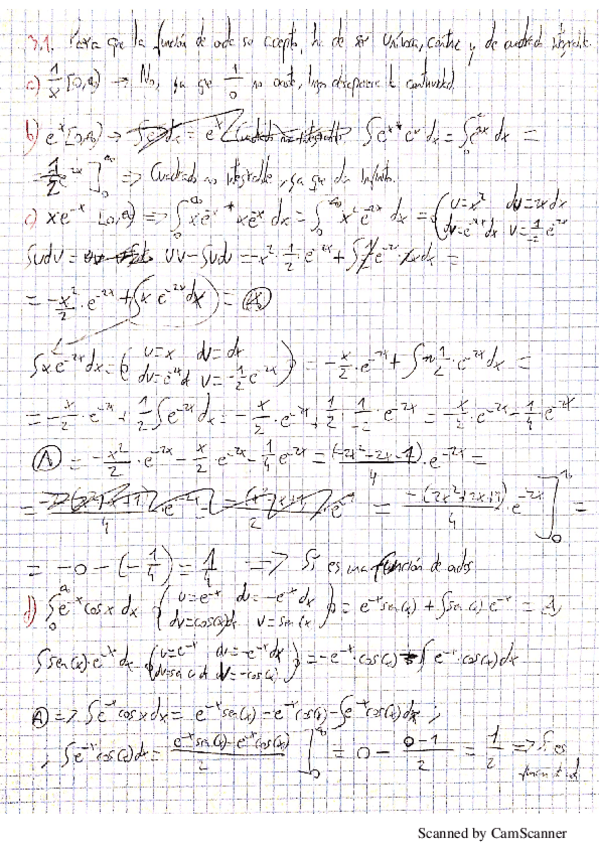 3.1. Para que la función de onda sea acepta, ha de ser unívoca, contínua y de cuadrado integrable.
a) 1/x [0,∞) → No, ya que 1/0 no existe, luego desaparece la continuidad.
b) e^x [0,∞) → ∫e^x · e^x dx = ∫e^2x dx =
1/2 e^2x ]_0^∞ => Cuadrado no integrable, ya que da infinito.
c) xe^-x [0,∞) => ∫_0^∞ xe^-x * xe^-x dx = ∫_0^∞ x² e^-2x dx = ( u=x² du=2xdx
dv=e^-2x dx v=-1/2 e^-2x
∫udv = uv-∫vdu = -x² · 1/2 · e^-2x + ∫1/2 e^-2x · 2x dx =
= -x²/2 · e^-2x + ∫x e^-2x dx =
∫xe^-2x dx = ( u=x du=dx
dv=e^-2x d v=-1/2 e^-2x ) = -x/2 · e^-2x + ∫1/2 · e^-2x dx =
= -x/2 · e^-2x + 1/2 ∫e^-2x dx = -x/2 · e^-2x + 1/2 · 1/-2 · e^-2x = -x/2 · e^-2x - 1/4 · e^-2x
(A) = -x²/2 · e^-2x - x/2 · e^-2x - 1/4 e^-2x = (-2x²-2x-1)/4 · e^-2x =
= -(2x²+2x+1)/4 · e^-2x ]_0^∞ =
= -0 - (-1/4) = 1/4 => Sí es una función de ondas
d) ∫_0^∞ e^-x cosx dx ( u=e^-x du=-e^-x dx
dv=cos(x)dx v=sen(x) ) = e^-x sen(x) + ∫sen(x) e^-x =
∫sen(x) · e^-x dx ( u=e^-x du=-e^-x dx
v=-cos(x) ) = -e^-x · cos(x) - ∫e^-x · cos(x) dx
(A) => ∫e^-x cosx dx = e^-x sen(x) - e^-x cos(x) - ∫e^-x cos(x) dx ;
; ∫e^-x cos(x) dx = (e^-x sen(x) - e^-x cos(x))/2 ]_0^∞ = 0 - (0-1)/2 = 1/2 => Sí es
Scanned by CamScanner